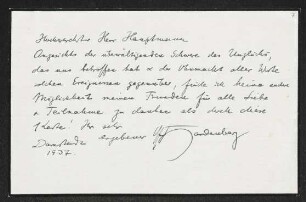 Hochverehrter Herr Hauptmann
Angesichts der überwältigenden Schwere des Unglücks,
das uns betroffen hat u. der Ohnmacht aller Worte
solchen Ereignissen gegenüber, finde ich keine andre
Möglichkeit meinen Freunden für alle Liebe
u. Teilnahme zu danken als durch diese
Karte! Ihr sehr
Darmstadt ergebener
1937.